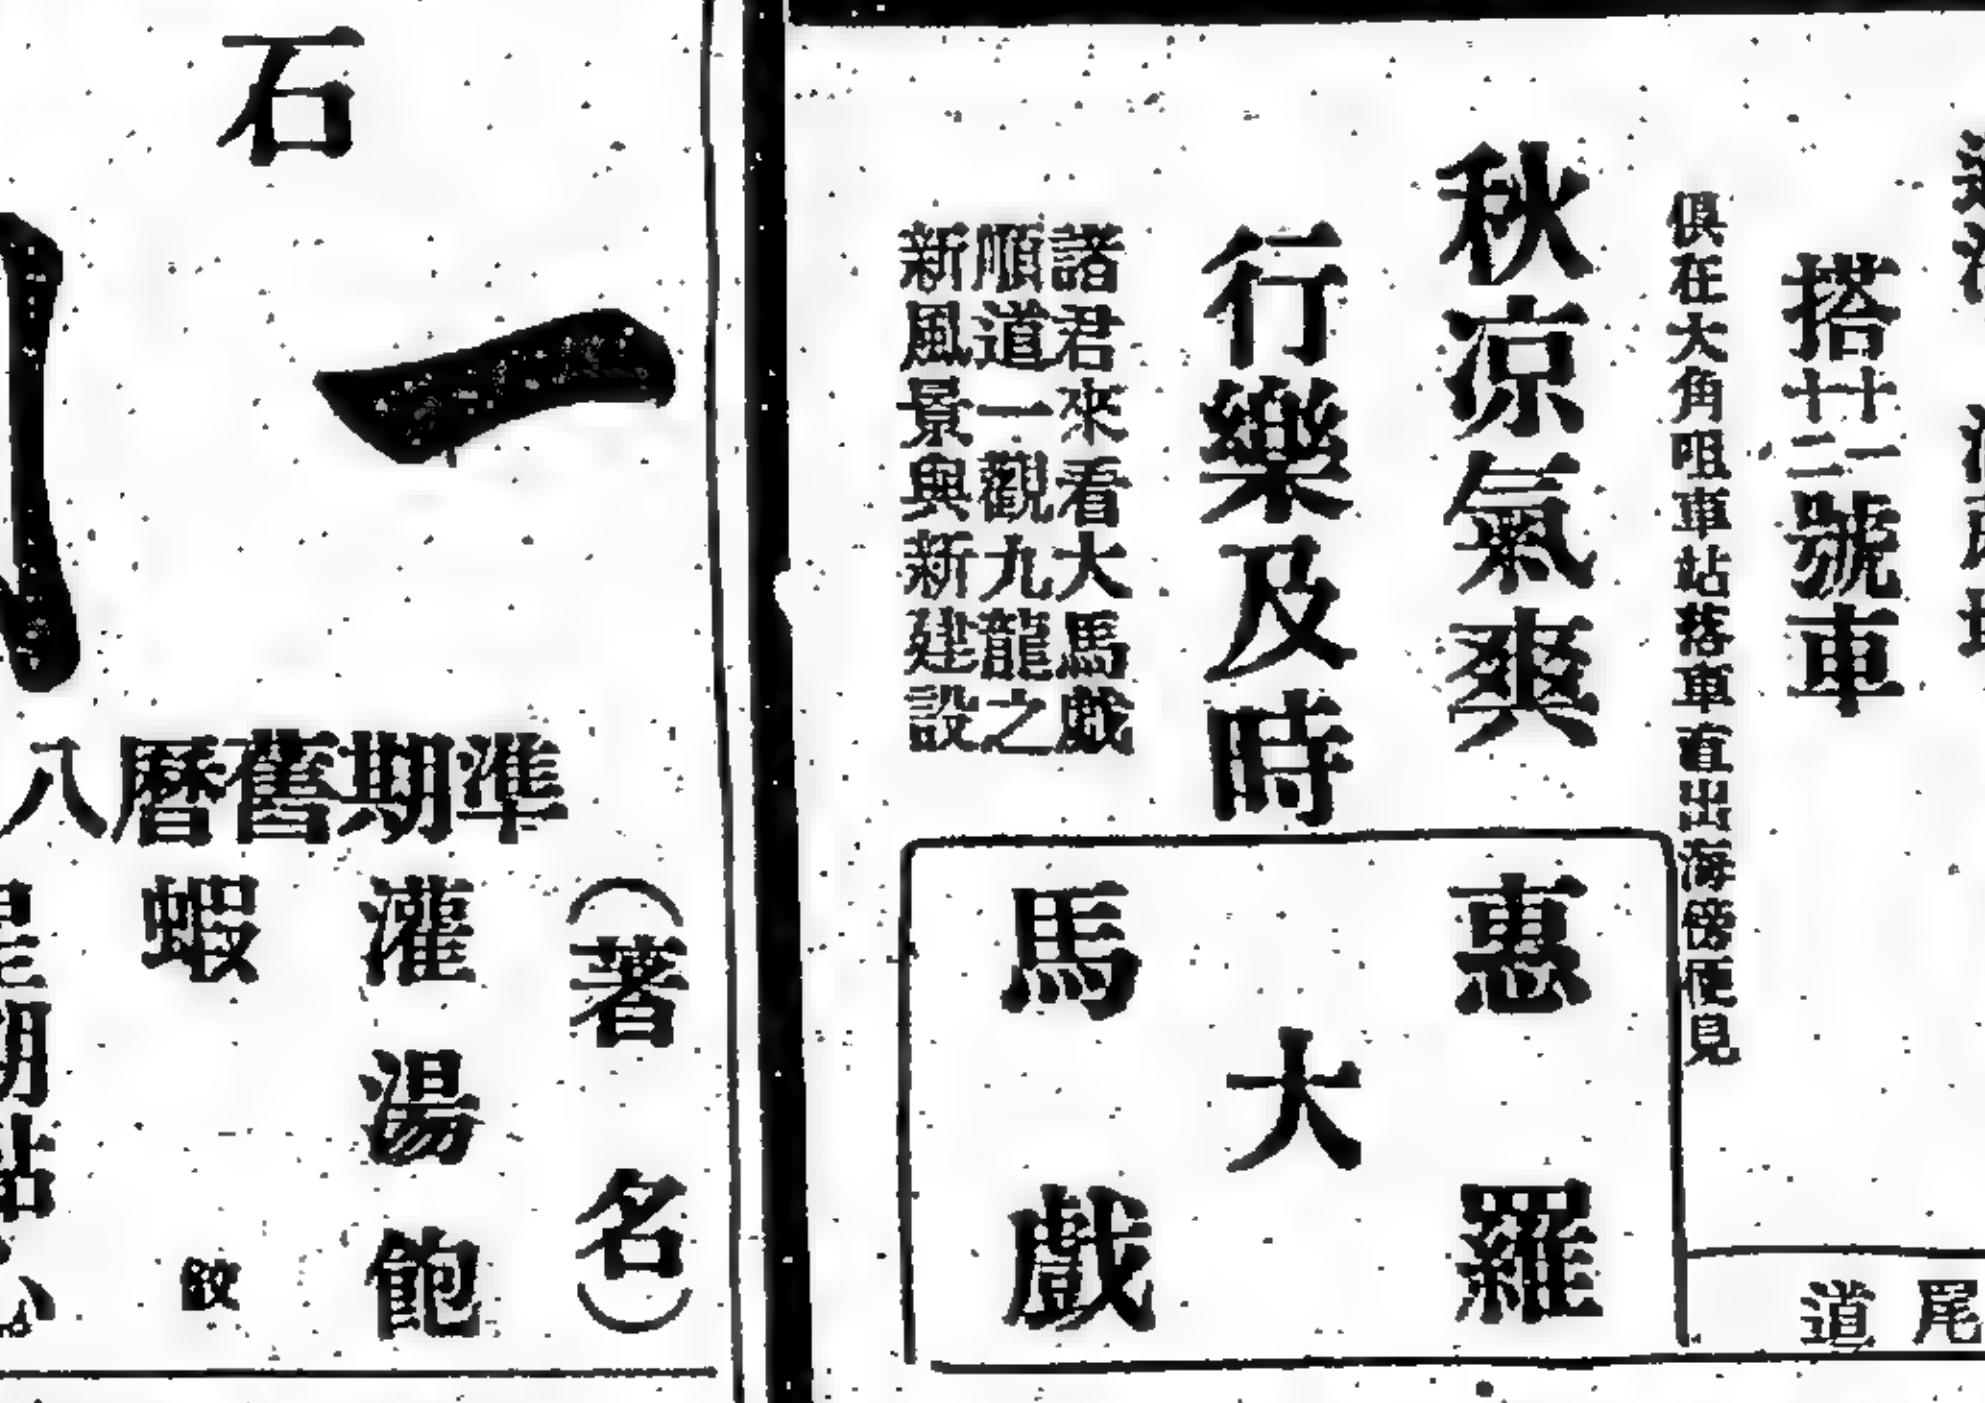 搭廿二號車
俱在大角咀車站落車直出海傍便見
秋凉氣爽
行樂及時
諸君來看大馬戲
順道一觀九龍之
新風景與新建設
惠羅
大
馬戲
尾道
石
一
準期舊曆八
（著名）
灌湯飽
蝦